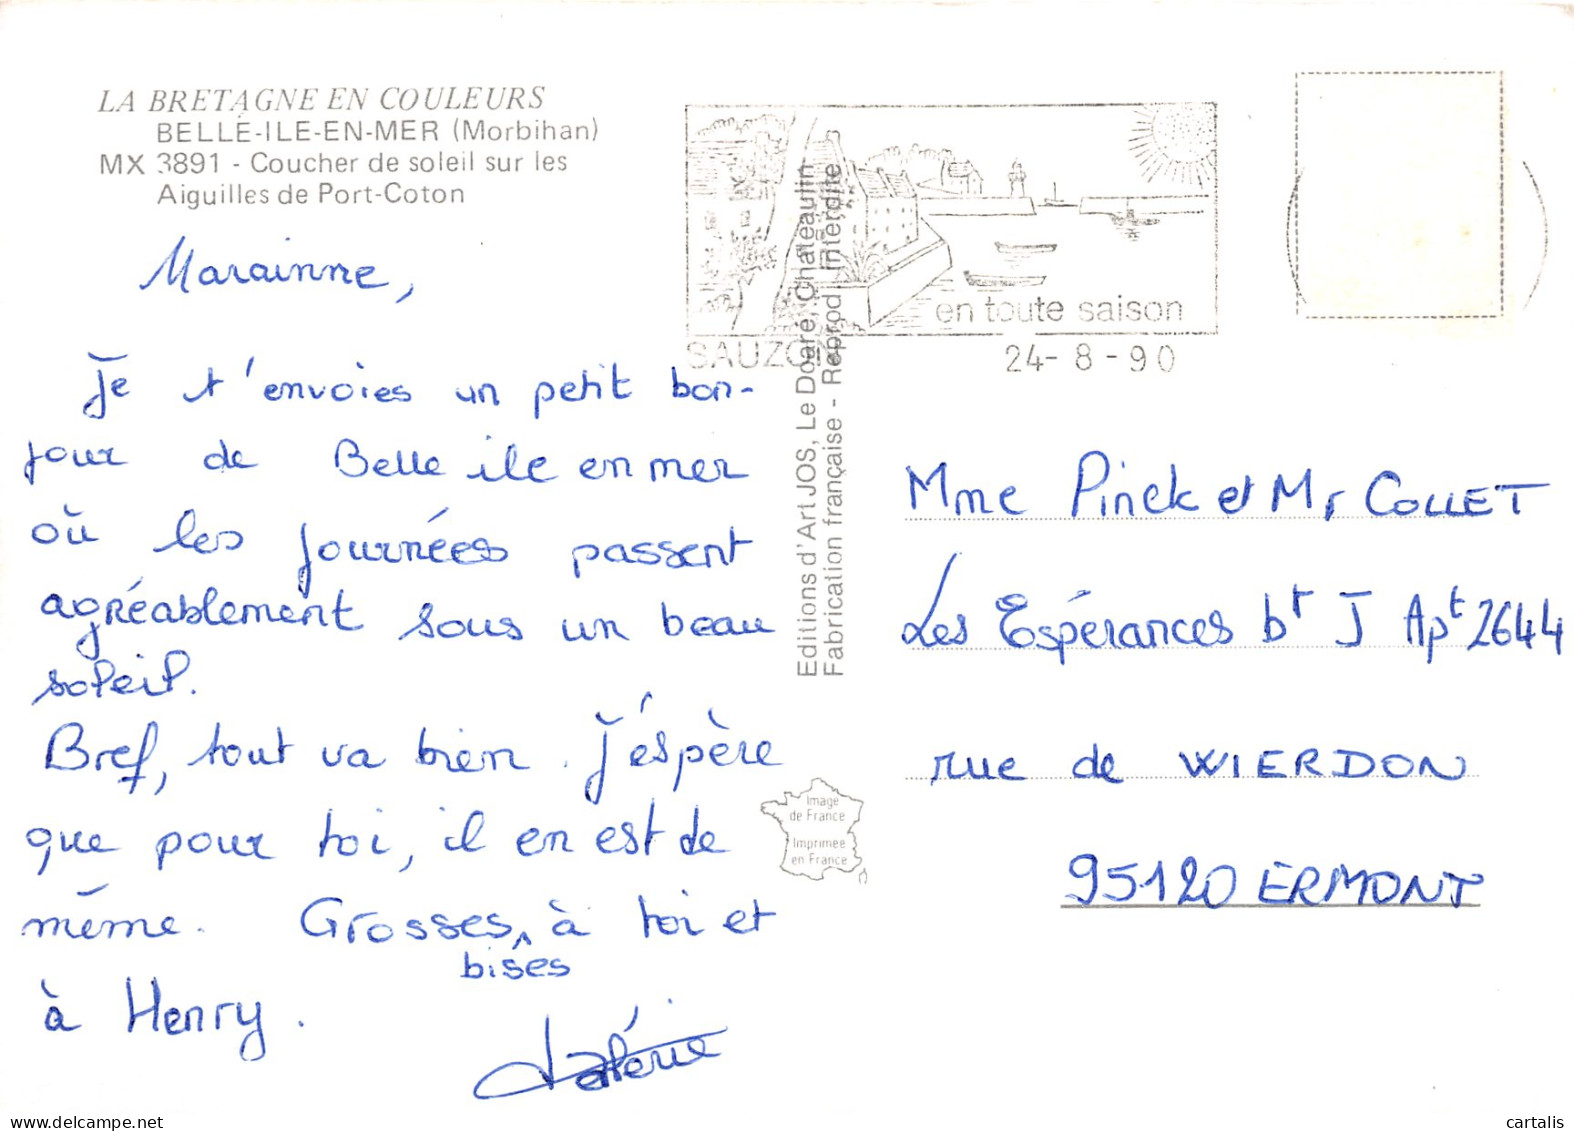 LA BRETAGNE EN COULEURS
BELLE-ILE-EN-MER (Morbihan)
MX 3891 - Coucher de soleil sur les
Aiguilles de Port-Coton
Marainne,
Je t'envoies un petit bon-
jour de Belle ile en mer
où les journées passent
agréablement sous un beau
soleil.
Bref, tout va bien. J'éspère
que pour toi, il en est de
même. Grosses ^ à toi et
bises
à Henry.
Valérie
Editions d'Art JOS, Le Doaré, Chateaulin
Fabrication française - Reprod. interdite
Image
de France
Imprimée
en France
en toute saison
SAUZON
24-8-90
Mme Pinck et Mr COLLET
Les Espérances bt J Apt 2644
rue de WIERDON
95120 ERMONT
www.delcampe.net
cartalis